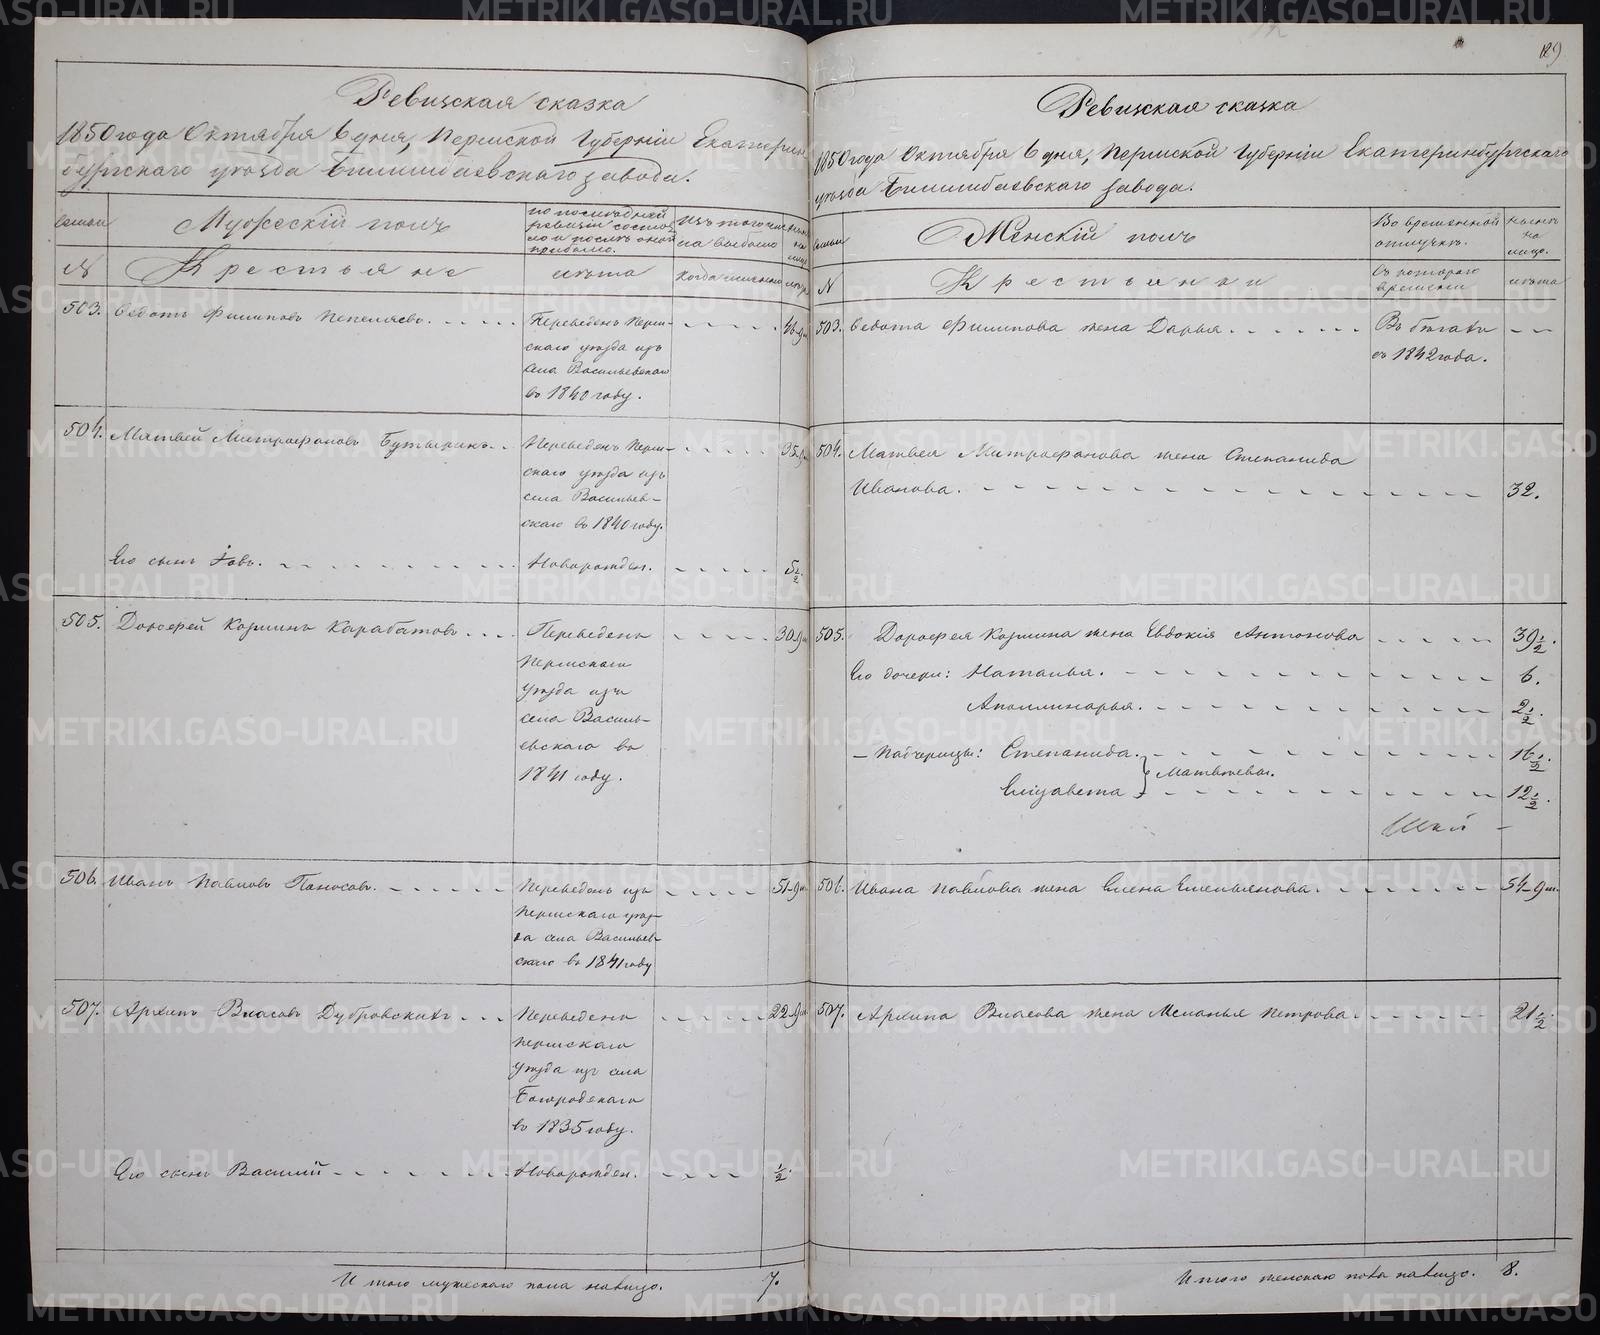 Ревизская сказка
1850 года Октября 6 дня, Пермской Губерніи Екатерин-
бургскаго уѣзда Билимбаевскаго завода.
Мужескій полъ
по послѣдней
ревизіи состоя-
ло и послѣ оной
прибыло.
Изъ того числа
выбыло
нынѣ
на
лицо
№
Крестьяне
лѣта
когда именно
лѣта
503. Федотъ Филиповъ Пепеляевъ. Переведенъ Перм- 46-9м
скаго уѣзда изъ
села Васильевскаго
въ 1840 году.
504. Матвей Митрофановъ Бутыринъ. Переведенъ Перм- 35-9м
скаго уѣзда изъ
села Васильев-
скаго въ 1840 году.
Его сынъ Іовъ. Новорожден. 5½.
505. Дорофей Козминъ Карабатовъ. Переведенъ 30-9м
Пермскаго
уѣзда изъ
села Василь-
евскаго въ
1841 году.
506. Иванъ Павловъ Паносовъ. Переведенъ изъ 51-9м
Пермскаго уѣз-
да села Васильев-
скаго въ 1841 году
507. Архипъ Власовъ Дубровскихъ. Переведенъ 22-9м
Пермскаго
уѣзда изъ села
Богородскаго
въ 1835 году.
Его сынъ Василій Новорожден. ½.
Итого мужескаго пола налицо. 7.
129
Ревизская сказка
1850 года Октября 6 дня, Пермской Губерніи Екатеринбургскаго
уѣзда Билимбаевскаго завода.
Женскій полъ
Во временной
отлучкѣ.
нынѣ
на
лицо.
№
Крестьянки
Съ котораго
времени
лѣта
503. Федота Филипова жена Дарья. Въ бѣгахъ
съ 1842 года.
504. Матвея Митрофанова жена Степанида
Иванова. 32.
505. Дорофея Козмина жена Евдокія Антонова 39½.
Его дочери: Наталья. 6.
Аполлинарья. 2½.
– Падчерицы: Степанида. 16½.
Матвѣевы.
Елизавета 12½.
506. Ивана Павлова жена Елена Емельянова. 54-9м.
507. Архипа Власова жена Меланья Петрова. 21½.
Итого женскаго пола налицо. 8.
METRIKI.GASO-URAL.RU